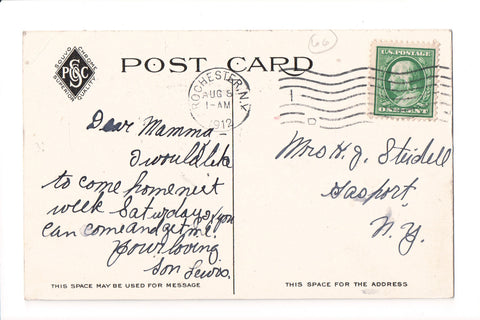 SOUVO CHROME
P S C C
SUPERIOR QUALITY
POST CARD
66
ROCHESTER, N.Y.
AUG 5
1-AM
1912
U.S. POSTAGE
ONE CENT
Dear Mamma
I would like
to come home next
week Saturday if you
can come and get me.
Your loving
Son
Mrs H. J. Steidell
Gasport,
N. Y.
THIS SPACE MAY BE USED FOR MESSAGE
THIS SPACE FOR THE ADDRESS